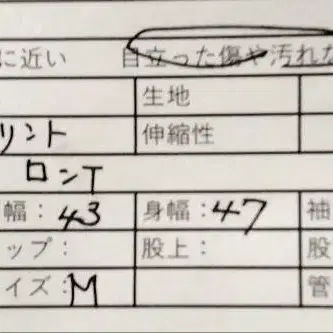 に近い 目立った傷や汚れな
生地
リント 伸縮性
ロンT
幅: 43 身幅: 47 袖
ップ: 股上: 股
イズ: M 管